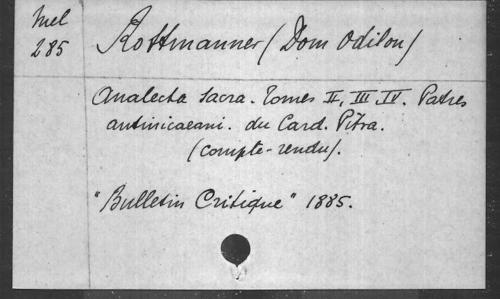 Mel
285
Rottmanner (Dom Odilon)
Analecta sacra. Tomes II, III IV. Patres
antinicaeani. du Card. Pitra.
(compte-rendu).
"Bulletin Critique" 1885.